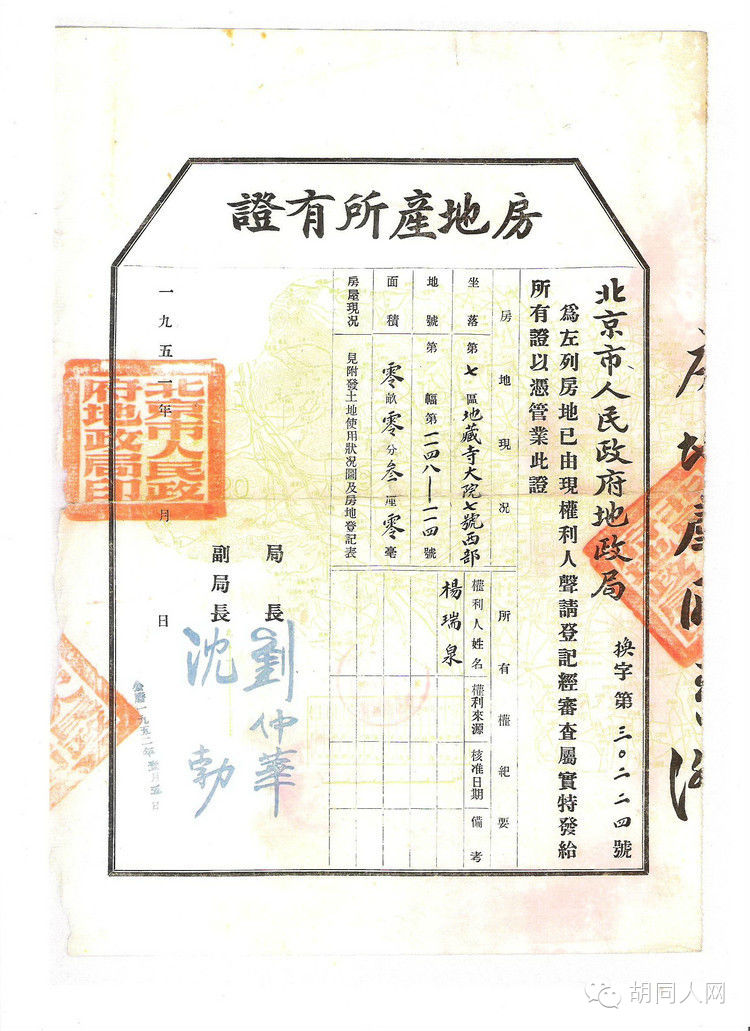 房地產所有證
北京市人民政府地政局
換字第三〇二二四號
為左列房地已由現權利人聲請登記經審查屬實特發給
所有證以憑管業此證
房地現況
所有權紀要
坐落
第七區地藏寺大院七號西部
地號
第 幅第一二四八—一一四號
面積
零畝零分叁厘零毫
房屋現況
見附發土地使用狀況圖及房地登記表
權利人姓名
權利來源
核准日期
備考
楊瑞泉
局長
劉仲華
副局長
沈勃
一九五一年 月 日
北京市人民政
府地政局印
胡同人网